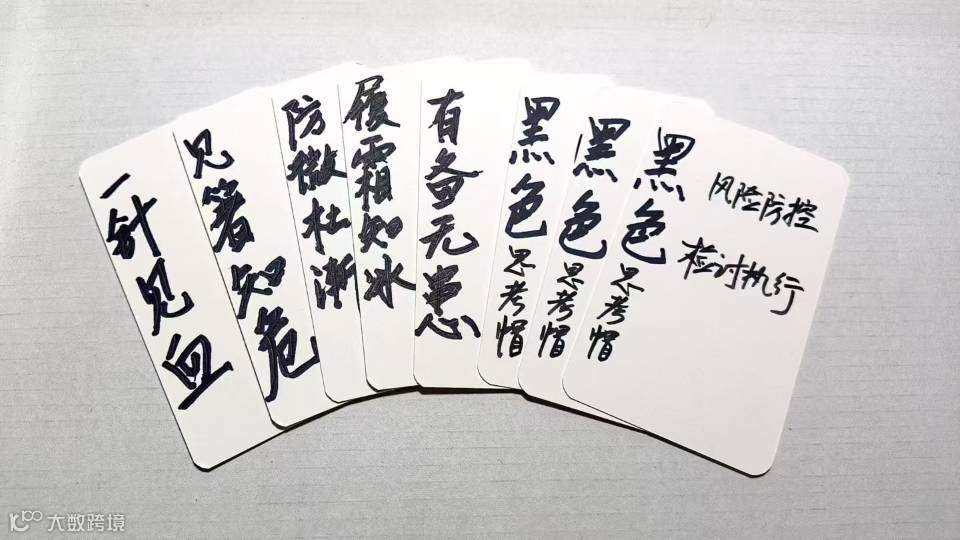 一针见血
见著知危
防微杜渐
履霜知冰
有备无患
黑色思考帽
黑色思考帽
黑色思考帽
风险防控
检讨执行
大数跨境